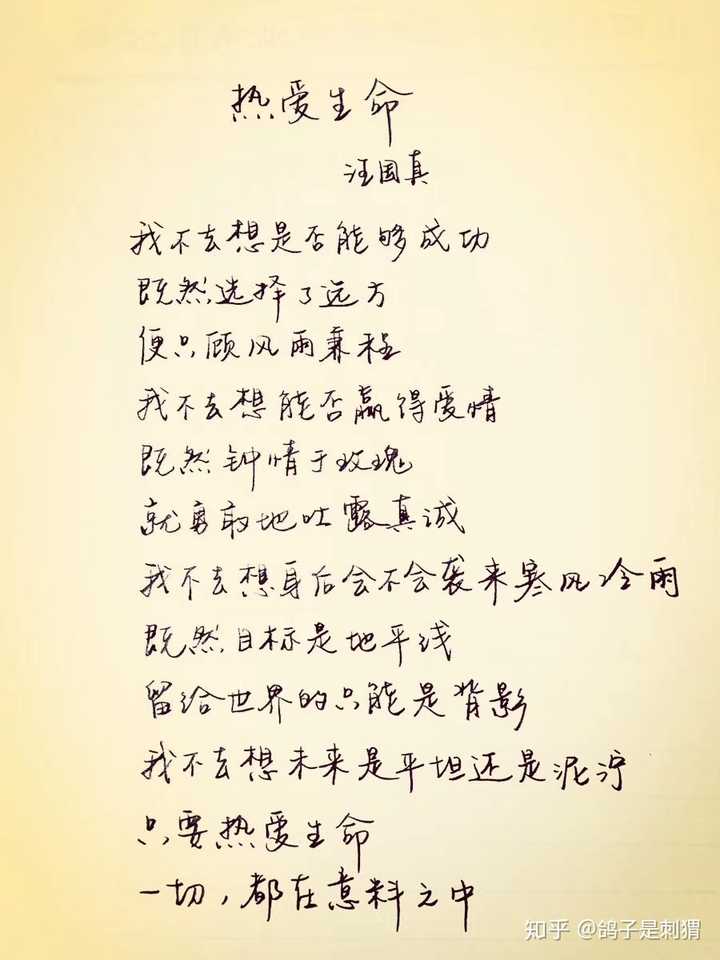 热爱生命
汪国真
我不去想是否能够成功
既然选择了远方
便只顾风雨兼程
我不去想能否赢得爱情
既然钟情于玫瑰
就勇敢地吐露真诚
我不去想身后会不会袭来寒风冷雨
既然目标是地平线
留给世界的只能是背影
我不去想未来是平坦还是泥泞
只要热爱生命
一切，都在意料之中
知乎 @鸽子是刺猬